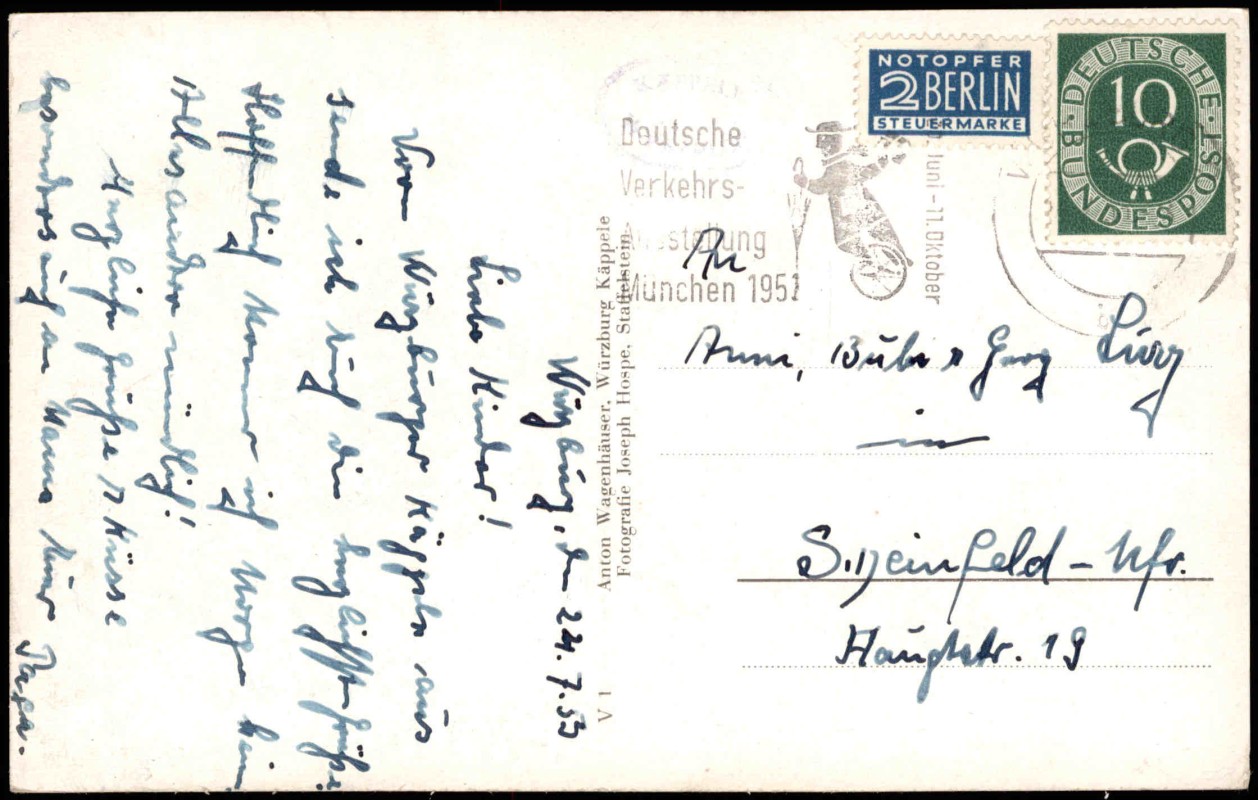 Würzburg, den 24.7.53
Liebe Kinder!
Vom Würzburger Käppele aus
sende ich Euch die herzlichsten Grüße
Hoffentlich komme ich Morgen heim
Alles andere mündlich!
Herzliche Grüße u. Küsse
besonders auch an Mama Euer Papa.
V 1 Anton Wagenhäuser, Würzburg Käppele
Fotografie Joseph Hospe, Staffelstein
Deutsche
Verkehrs-
Ausstellung
München 1953
Juni - 11. Oktober
NOTOPFER
2 BERLIN
STEUERMARKE
DEUTSCHE
BUNDESPOST
10
An
Anni, Bubi u Georg
in
Scheinfeld - Mfr.
Hauptstr. 19